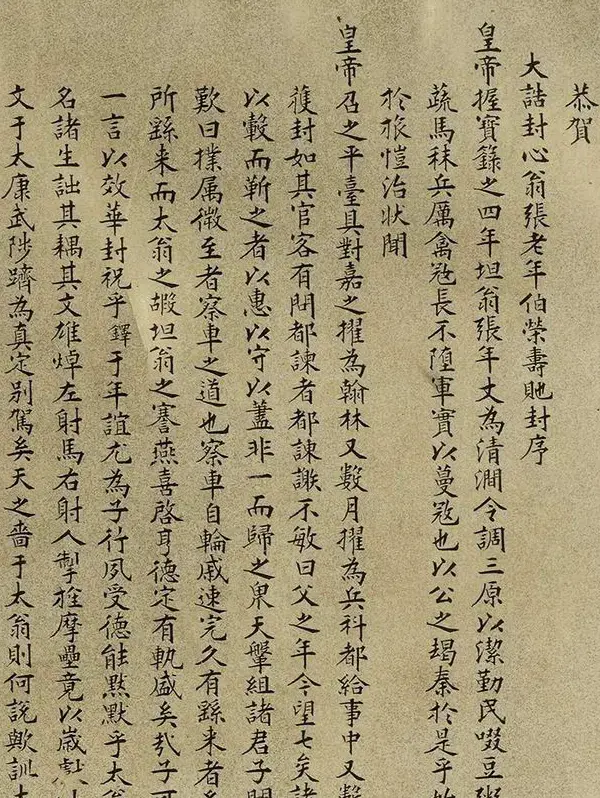 恭賀
大誥封心翁張老年伯榮壽貤封序
皇帝握寶籙之四年坦翁張年丈為清澗令調三原以潔勤民啜豆粥
蔬馬秣兵厲禽寇長不墮軍實以蔓寇也以公之竭秦於是乎
於旅愷治狀聞
皇帝召之平臺具對嘉之擢為翰林又數月擢為兵科都給事中又
蒦封如其官客有問都諫者都諫謝不敏曰父之年今望七矣諸
以轂而蘄之者以惠以守以蓋非一而歸之帛天鞶組諸君子
歎曰樸屬微至者察車之道也察車自輪戚速完久有繇来者
所繇来而太翁之嘏坦翁之謇燕喜啓亨德定有軌盛矣哉子
一言以效華封祝乎鐸于年誼尤為子行夙受德能黙默乎太
名諸生詘其耦其文雄焯左射馬右射人掣挂摩壘竟以歲
文于太康武陟躋為真定別駕矣天之嗇于太翁則何說歟訓